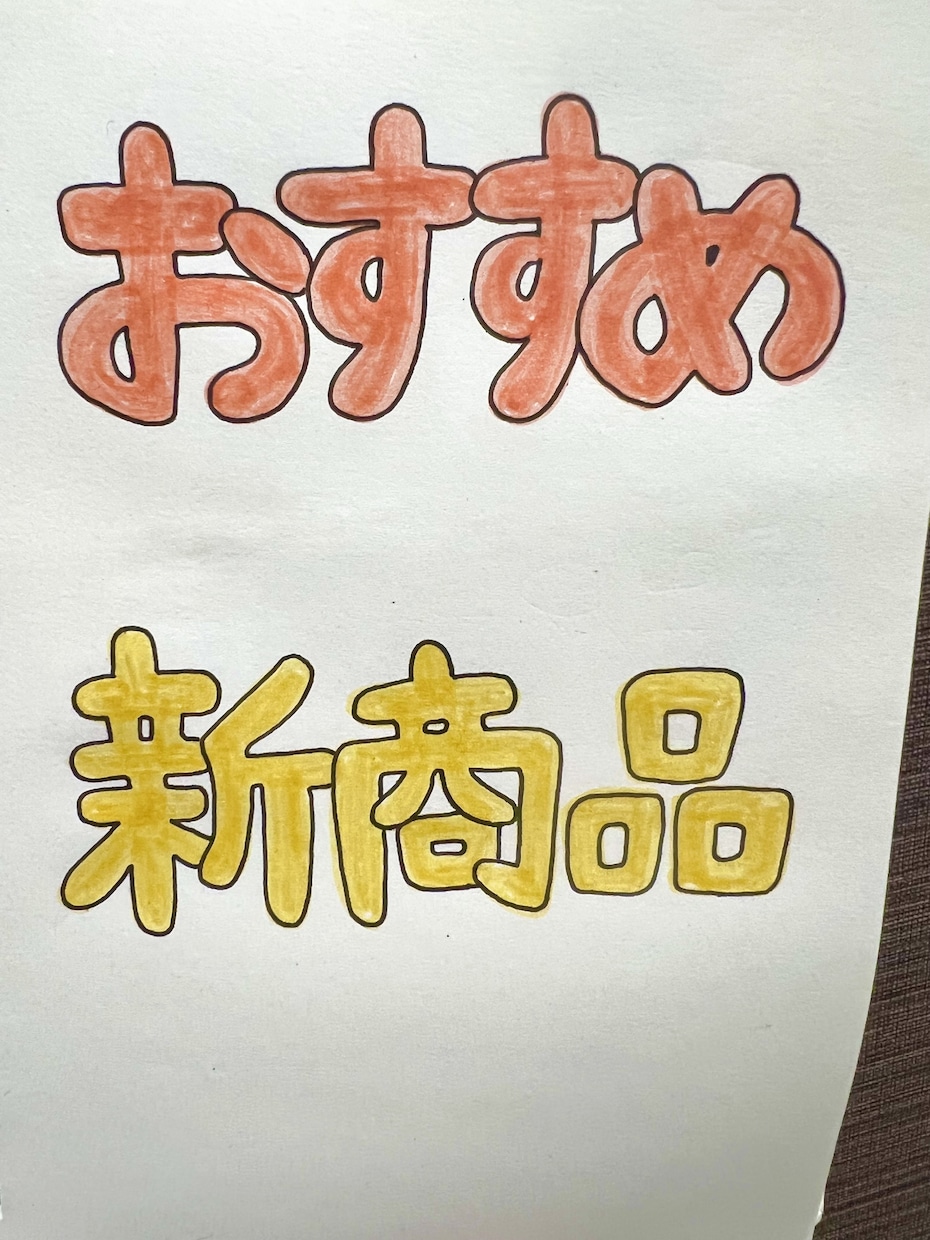 おすすめ
新商品